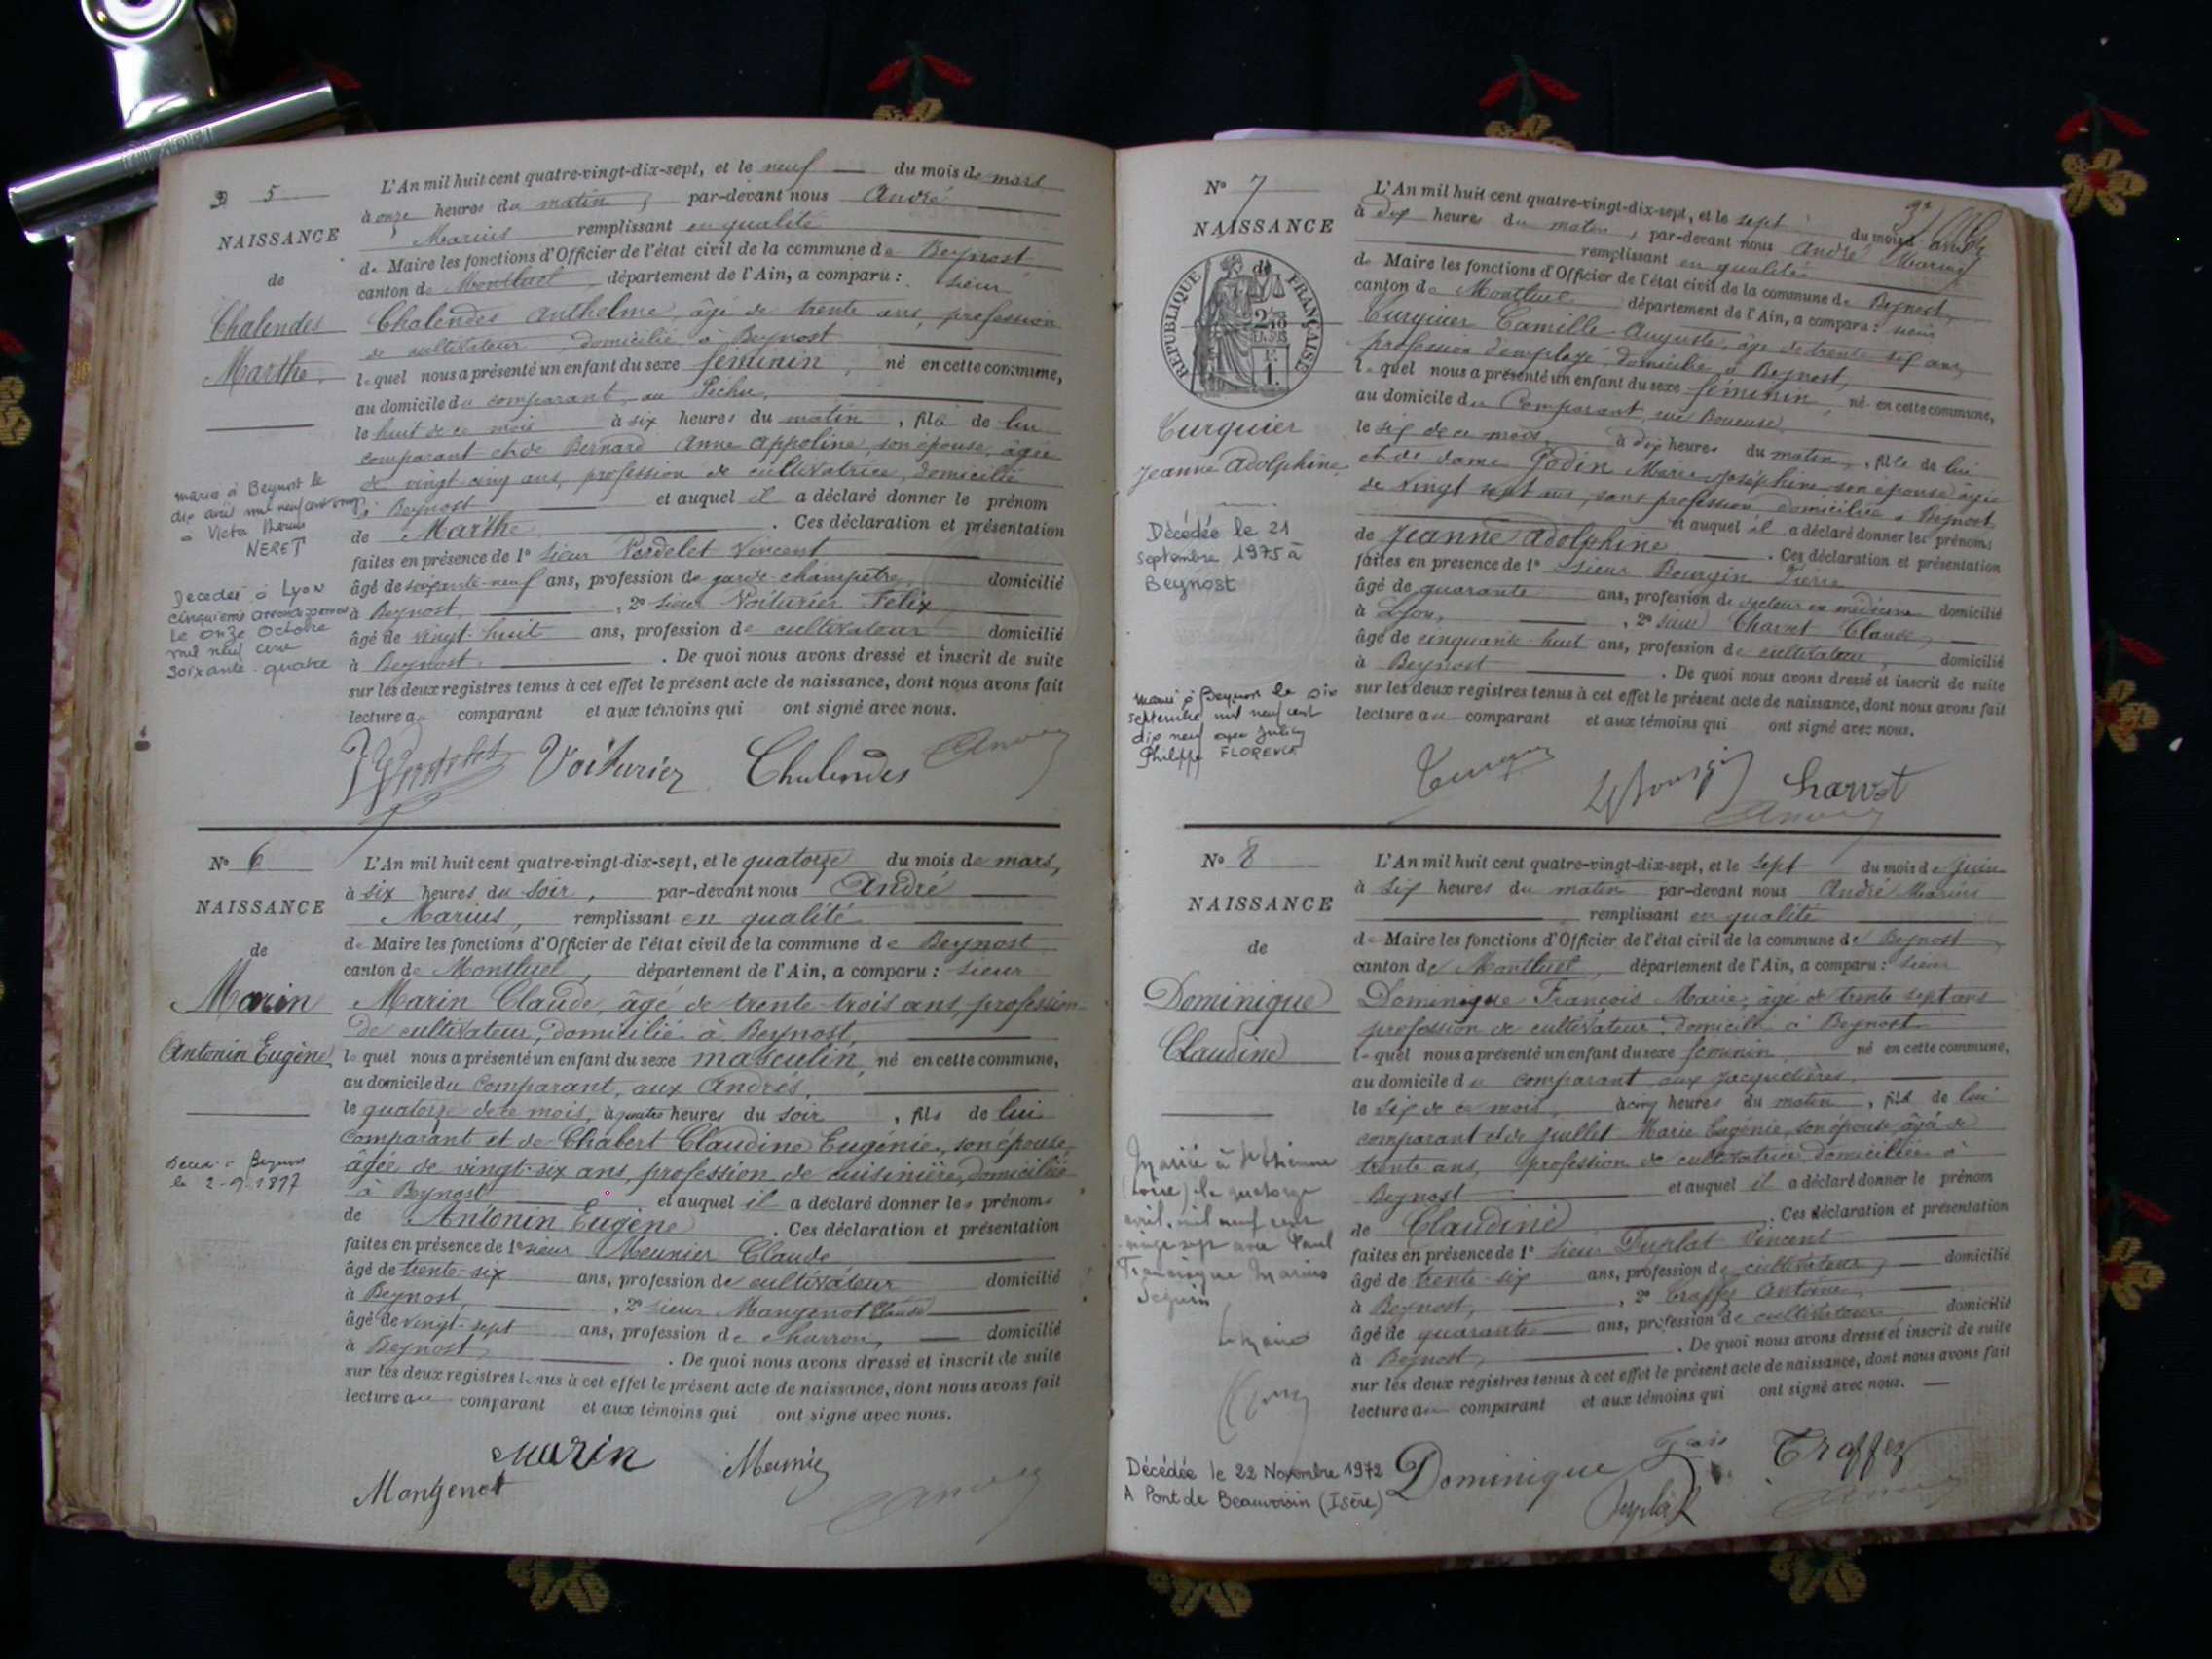 N° 5
NAISSANCE
de
Chalendes
Marthe
marié à Beynost le
dix avril mil neuf cent vingt
à Victor
NERET
Décédée à Lyon
cinquième arrondissement
le onze Octobre
mil neuf cent
soixante-quatre
L'An mil huit cent quatre-vingt-dix-sept, et le neuf du mois de mars
à onze heures du matin, par-devant nous André
Marius remplissant en qualité
de Maire les fonctions d'Officier de l'état civil de la commune de Beynost
canton de Montluel, département de l'Ain, a comparu : sieur
Chalendes Anthelme, âgé de trente ans, profession
de cultivateur, domicilié à Beynost
lequel nous a présenté un enfant du sexe féminin, né en cette commune,
au domicile du comparant, au Péchu,
le huit de ce mois à six heures du matin, fille de lui
comparant et de Bernard Anne Appoline, son épouse, âgée
de vingt cinq ans, profession de cultivatrice, domicilié
à Beynost et auquel il a déclaré donner le prénom
de Marthe. Ces déclaration et présentation
faites en présence de 1° sieur Verdelet Vincent
âgé de soixante-neuf ans, profession de garde-champêtre, domicilié
à Beynost, , 2° sieur Voiturier Félix
âgé de vingt-huit ans, profession de cultivateur domicilié
à Beynost. . De quoi nous avons dressé et inscrit de suite
sur les deux registres tenus à cet effet le présent acte de naissance, dont nous avons fait
lecture au comparant et aux témoins qui ont signé avec nous.
Voiturier Chalendes
N° 6
NAISSANCE
de
Marin
Antonin Eugène
Décédé à Beynost
le 2-9-1897
L'An mil huit cent quatre-vingt-dix-sept, et le quatorze du mois de mars,
à six heures du soir, par-devant nous André
Marius, remplissant en qualité
de Maire les fonctions d'Officier de l'état civil de la commune de Beynost
canton de Montluel, département de l'Ain, a comparu : sieur
Marin Claude, âgé de trente-trois ans, profession
de cultivateur, domicilié à Beynost,
lequel nous a présenté un enfant du sexe masculin, né en cette commune,
au domicile du comparant, aux Andrés,
le quatorze de ce mois, à quatre heures du soir, fils de lui
comparant et de Chabert Claudine Eugénie, son épouse,
âgée de vingt-six ans, profession de cuisinière, domiciliée
à Beynost et auquel il a déclaré donner les prénoms
de Antonin Eugène. Ces déclaration et présentation
faites en présence de 1° sieur Meunier Claude
âgé de trente-six ans, profession de cultivateur domicilié
à Beynost, , 2° sieur Mangenot Claude
âgé de vingt-sept ans, profession de charron, domicilié
à Beynost, . De quoi nous avons dressé et inscrit de suite
sur les deux registres tenus à cet effet le présent acte de naissance, dont nous avons fait
lecture au comparant et aux témoins qui ont signé avec nous.
Marin Meunier
Mangenot
N° 7
NAISSANCE
de
RÉPUBLIQUE FRANÇAISE
Turquier
Jeanne Adolphine
Décédée le 21
septembre 1975 à
Beynost
Marié à Beynost le six
septembre mil neuf cent
dix neuf avec
Philippe FLORENCE
L'An mil huit cent quatre-vingt-dix-sept, et le sept du mois d'avril
à dix heures du matin, par-devant nous André Marius
remplissant en qualité
de Maire les fonctions d'Officier de l'état civil de la commune de Beynost,
canton de Montluel département de l'Ain, a comparu : sieur
Turquier Camille Auguste, âgé de trente six ans,
profession d'employé, domicilié à Beynost,
lequel nous a présenté un enfant du sexe féminin, né en cette commune,
au domicile du Comparant, rue Boueuse
le six de ce mois, à dix heures du matin, fille de lui
et de dame Godin Marie Joséphine son épouse âgée
de vingt sept ans, sans profession domiciliée à Beynost
et auquel il a déclaré donner les prénoms
de Jeanne Adolphine. Ces déclaration et présentation
faites en présence de 1° sieur Bourgin Pierre
âgé de quarante ans, profession de docteur en médecine domicilié
à Lyon, , 2° sieur Charvet Claude,
âgé de cinquante huit ans, profession de cultivateur, domicilié
à Beynost . De quoi nous avons dressé et inscrit de suite
sur les deux registres tenus à cet effet le présent acte de naissance, dont nous avons fait
lecture au comparant et aux témoins qui ont signé avec nous.
Charvet
N° 8
NAISSANCE
de
Dominique
Claudine
Mariée à St Etienne
(Loire) le quatorze
avril mil neuf cent
vingt sept avec Paul
Marius
Seguin
Le Maire
Décédée le 22 Novembre 1972
A Pont de Beauvoisin (Isère)
L'An mil huit cent quatre-vingt-dix-sept, et le sept du mois de juin
à six heures du matin par-devant nous André Marius
remplissant en qualité
de Maire les fonctions d'Officier de l'état civil de la commune de Beynost,
canton de Montluel, département de l'Ain, a comparu : sieur
Dominique François Marie, âgé de trente sept ans
profession de cultivateur, domicilié à Beynost
lequel nous a présenté un enfant du sexe féminin, né en cette commune,
au domicile du comparant aux Jacquelières,
le six de ce mois, à cinq heures du matin, fille de lui
comparant et de Juillet Marie Eugénie, son épouse âgée de
trente ans, profession de cultivatrice, domiciliée à
Beynost et auquel il a déclaré donner le prénom
de Claudine. Ces déclaration et présentation
faites en présence de 1° sieur Duplat Vincent
âgé de trente-six ans, profession de cultivateur, domicilié
à Beynost, , 2° Traffey Antoine,
âgé de quarante ans, profession de cultivateur domicilié
à Beynost, . De quoi nous avons dressé et inscrit de suite
sur les deux registres tenus à cet effet le présent acte de naissance, dont nous avons fait
lecture au comparant et aux témoins qui ont signé avec nous.
Dominique Traffey
Duplat